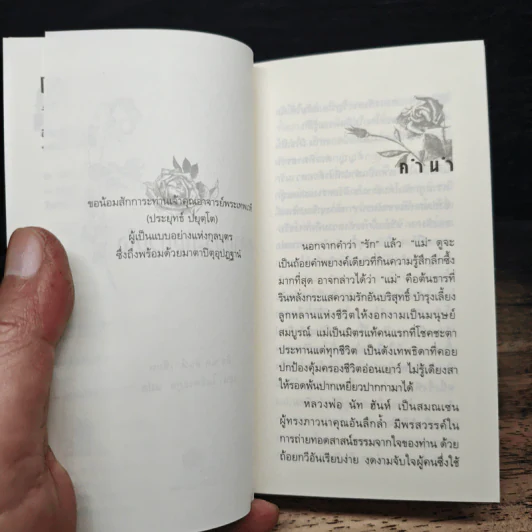 ขอน้อมสักการะท่านเจ้าคุณอาจารย์พระเทพเวที
(ประยุทธ์ ปยุตฺโต)
ผู้เป็นแบบอย่างแห่งกุลบุตร
ซึ่งถึงพร้อมด้วยมาตาปิตุอุปัฏฐาน์
คำนำ
นอกจากคำว่า “รัก” แล้ว “แม่” ดูจะ
เป็นถ้อยคำพยางค์เดียวที่กินความรู้สึกลึกซึ้ง
มากที่สุด อาจกล่าวได้ว่า “แม่” คือต้นธารที่
รินหลั่งกระแสความรักอันบริสุทธิ์ บำรุงเลี้ยง
ลูกหลานแห่งชีวิตให้งอกงามเป็นมนุษย์
สมบูรณ์ แม่เป็นมิตรแท้คนแรกที่โชคชะตา
ประทานแด่ทุกชีวิต เป็นดังเทพธิดาที่คอย
ปกป้องคุ้มครองชีวิตอ่อนเยาว์ ไม่รู้เดียงสา
ให้รอดพ้นปากเหยี่ยวปากกามาได้
หลวงพ่อ นัท ฮันห์ เป็นสมณเซน
ผู้ทรงภาวนาคุณอันลึกล้ำ มีพรสวรรค์ใน
การถ่ายทอดสาสน์ธรรมจากใจของท่าน ด้วย
ถ้อยกวีอันเรียบง่าย งดงามจับใจผู้คนซึ่งใช้